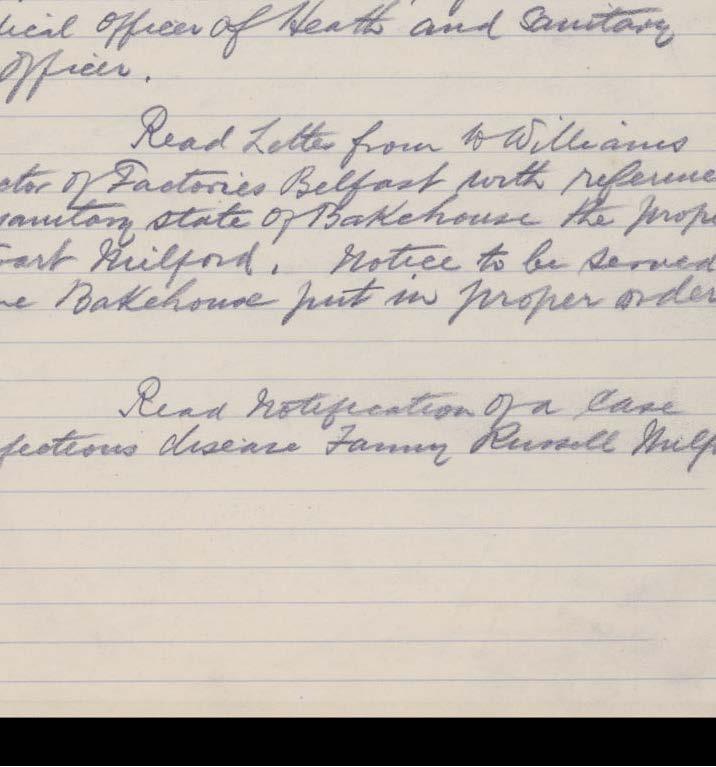 dical Officer of Heath and Sanitary
Officer.
Read Letter from W Williams
ctor of Factories Belfast with reference
sanitary state of Bakehouse the prope
wart Milford. Notice to be served
ne Bakehouse put in proper order
Read Notification of a Case
fectious disease Fanny Russell Milf